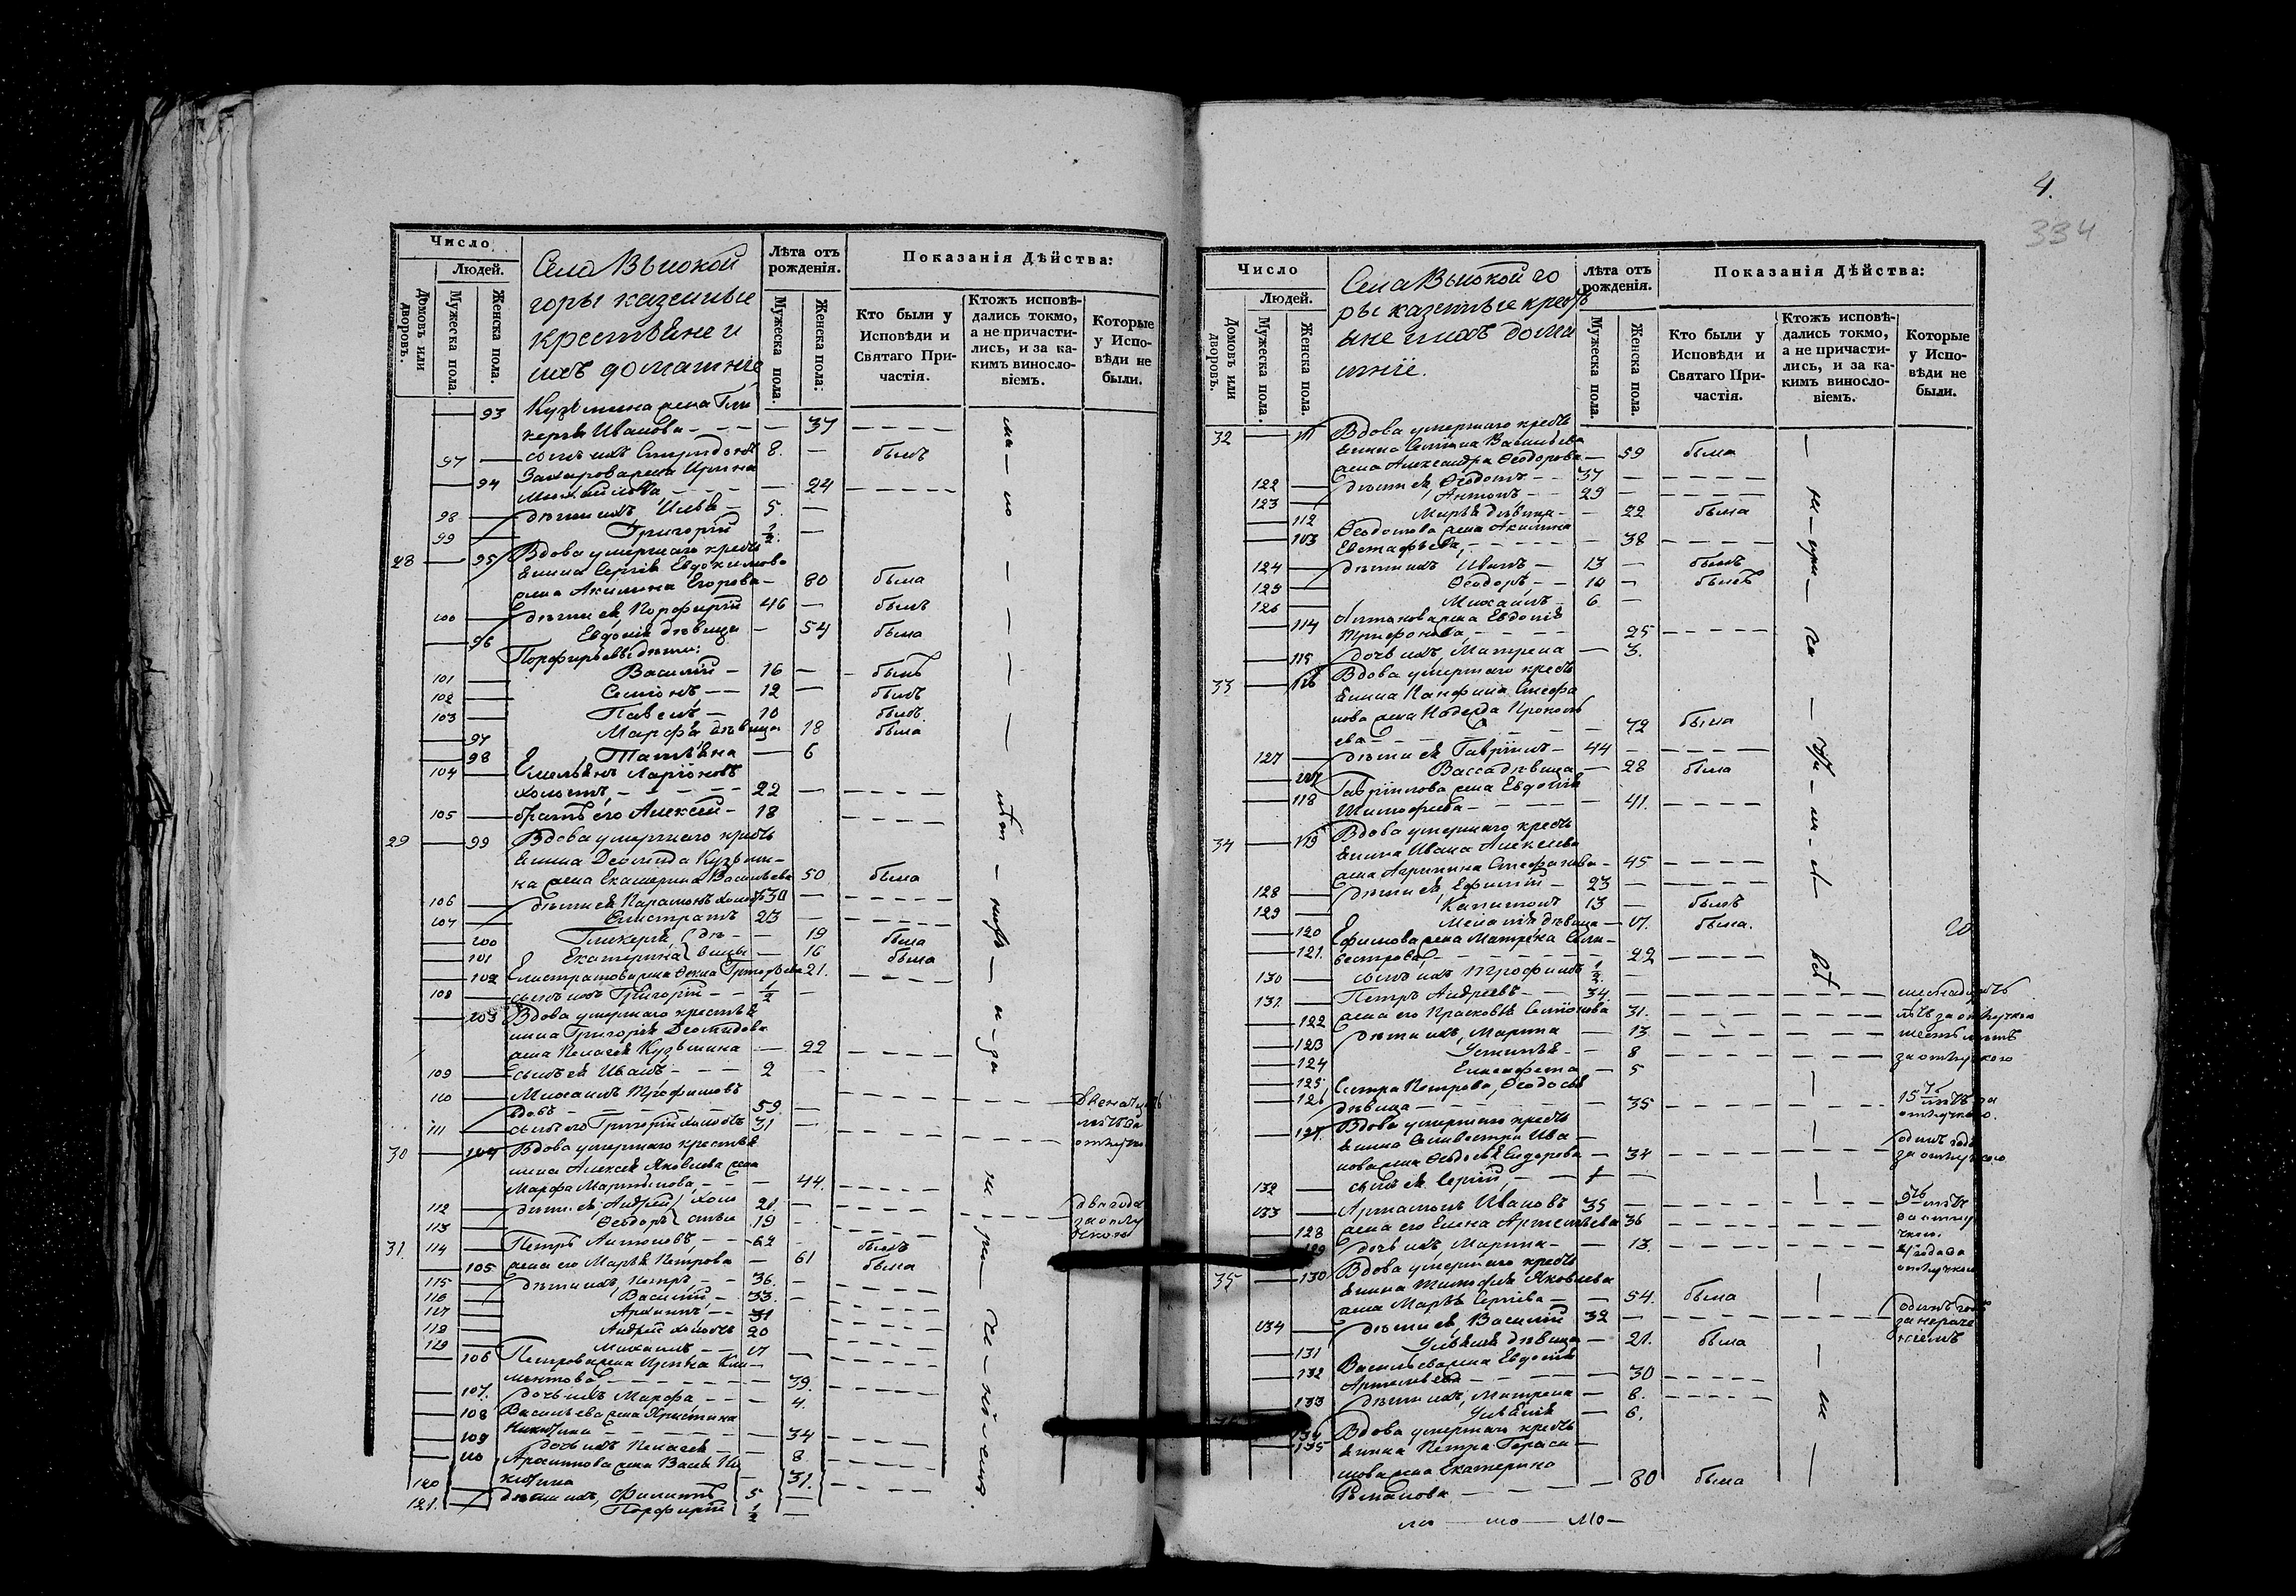 Число
Людей.
Домовъ или дворовъ.
Мужеска пола.
Женска пола.
Села Высокой
горы казенные
крестьяне и
ихъ домашніе
Лѣта отъ рожденія.
Мужеска пола.
Женска пола.
Показанія Дѣйства:
Кто были у Исповѣди и Святаго Причастія.
Ктожъ исповѣдались токмо, а не причастились, и за какимъ винословіемъ.
Которые у Исповѣди не были.
93 Кузьмина жена Гли
керія Иванова 37
97 сынъ ихъ Спиридонъ 8. былъ
94 Захарова жена Ирина
Михайлова 24
98 дѣти ихъ Илья 5.
99 Григорій 1/2.
28 95 Вдова умершаго кресть
янина Сергія Евдокимова
жена Акилина Егорова 80 была
100 дѣти ея, Порфирій 46 былъ
96 Евдокія дѣвица 54 была
Порфирьевы дѣти:
101 Василій 16 былъ
102 Семіонъ 12 былъ
103 Павелъ 10 былъ
97 Марфа дѣвица 18 была
98 Татьяна 6
104 Емельянъ Ларіоновъ
холостъ, 22
105 братъ его Алексій 18
29 99 Вдова умершаго кресть
янина Деомида Кузьми-
на жена Екатерина Васильева 50 была
106 дѣти ея Парамонъ холостъ 30
107 Елистратъ 23
100 Гликерія дѣ 19 была
101 Екатерина вицы 16 была
102 Елистратова жена Фекла Григорьева 21.
108 сынъ ихъ Григорій 1/2
103 Вдова умершаго крестья
нина Григорія Деомидова
жена Пелагея Кузьмина 22
109 сынъ ея Иванъ 2
110 Михаилъ Трофимовъ
вдовъ 59. двенатцать
111 сынъ его Григорій холостъ 31 лѣтъ за отлучкою
30 104 Вдова умершаго крестья
нина Алексея Яковлева жена
Марфа Мартынова, 44.
112 дѣти ея Андрей холо 21. два года
113 Ѳеодоръ стые 19 за отлучкою
31. 114 Петръ Антоновъ 62 былъ
105 жена его Марья Петрова 61 была
115 дѣти ихъ, Петръ, 36.
116 Василій 33.
117 Архипъ 31
118 Андрей холостъ 20
119 Михаилъ 17
106 Петрова жена Ирина Кли-
ментова 39.
107. дочь ихъ Марфа 4.
108 Васильева жена Христина
Никитина 34
109 дочь ихъ Пелагея 8
110 Архипова жена Васса Ни
китина 31.
120 дѣти ихъ, Филиппъ 5
121. Порфирій 1/2
4.
334
Число
Людей.
Домовъ или дворовъ.
Мужеска пола
Женска пола.
Села Высокой го
ры казенные кресть
яне и ихъ дома
шніе.
Лѣта отъ рожденія.
Мужеска пола.
Женска пола.
Показанія Дѣйства:
Кто были у Исповѣди и Святаго Причастія.
Ктожъ исповѣдались токмо, а не причастились, и за какимъ винословіемъ.
Которые у Исповѣди не были.
32 111 Вдова умершаго кресть
янина Семіона Васильева
жена Александра Ѳеодорова 59 была
122 дѣти ея, Ѳедотъ 37
123 Антонъ 29
112 Марья дѣвица 22 была
113 Ѳедотова жена Акилина
Евстафьева, 38
124 дѣти ихъ Иванъ 13 былъ
125 Ѳеодоръ 10 былъ
126 Михаилъ 6
114 Антонова жена Евдокія
Трифонова 25
115 дочь ихъ, Матрена 3.
33 116 Вдова умершаго кресть
янина Панфила Стефа
нова жена Надежда Прокопь
ева 72 была
127 дѣти ея Гавріилъ 44
117 Васса дѣвица 28 была
118 Гавріилова жена Евдокія
Тимофеева 41.
34 119 Вдова умершаго кресть
янина Ивана Алексеева
жена Агрипина Стефанова 45
128 дѣти ея, Ефимій 23
129 Капитонъ 13 былъ
120 Меланія дѣвица 17. была.
121. Ефимова жена Матрена Сели-
вестрова, 22
130 сынъ ихъ Трофимъ 1/2.
131. Петръ Андреевъ 34.
122 жена его Прасковья Семіонова 31.
123 дѣти ихъ, Марина 13
124 Устинья 8
125. Елисафета 5
126 Сестра Петрова, Ѳеодосья
дѣвица 35
127. Вдова умершаго кресть
янина Селивестра Ива
нова жена Ѳедосья Сидорова 34 одинъ годъ за отлучкою
132 сынъ ея Сергій, 1
133 Артамонъ Ивановъ 35
128 жена его Елена Артемьева 36
129 дочь ихъ, Марина 13.
35 130 Вдова умершаго кресть
янина Тимофея Яковлева
жена Марья Сергіева 54. была
134 дѣти ея, Василій 32 одинъ годъ за нераченіемъ
131 Ульяна дѣвица 21. была
132 Васильева жена Евдокія
Артемьева 30
133 дѣти ихъ, Матрена 8.
134 Ульянія 6.
135 Вдова умершаго кресть
янина Петра Гераси
мова жена Екатерина
Романова 80 была